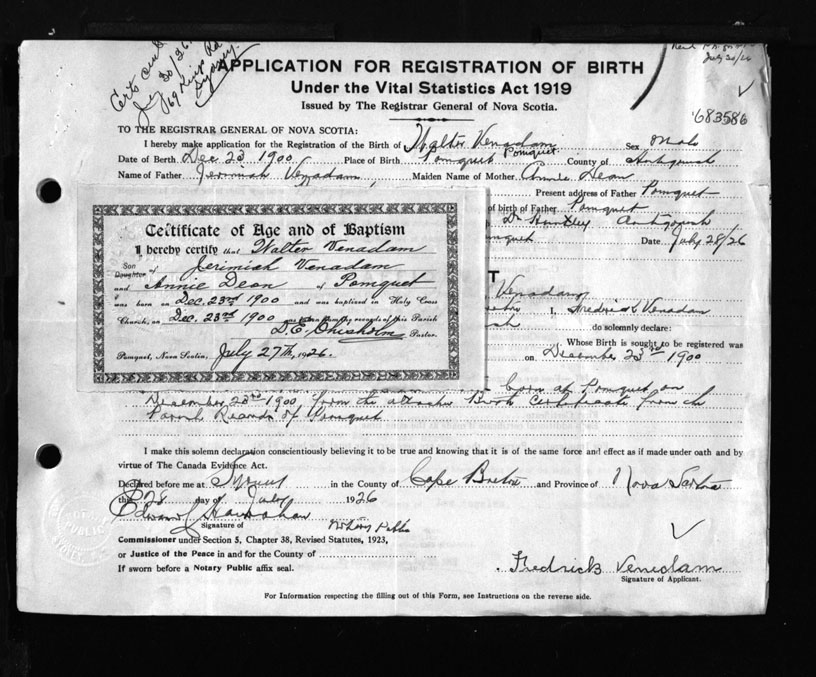 Certs and
July 30/26
169 Kings Rd
Sydney.
July 30/26
APPLICATION FOR REGISTRATION OF BIRTH
Under the Vital Statistics Act 1919
Issued by The Registrar General of Nova Scotia.
683586
TO THE REGISTRAR GENERAL OF NOVA SCOTIA:
I hereby make application for the Registration of the Birth of Walter Venadam Sex Male
Date of Birth Dec 23 1900 Place of Birth Pomquet Pomquet County of Antigonish
Name of Father Jeremiah Venadam, Maiden Name of Mother Annie Dean
Present address of Father Pomquet
of birth of Father Pomquet
Dr Huntley Antigonish
Date July 28/26
Certificate of Age and of Baptism
I hereby certify that Walter Venadam
Son Daughter of Jerimiah Venadam
and Annie Deon of Pomquet
was born on Dec. 23rd 1900 and was baptized in Holy Cross
Church, on Dec. 23rd 1900 records of this Parish
D.E. Chisholm Pastor.
Pomquet, Nova Scotia, July 27th, 1926.
T
Venadam
I, Fredrick Venadam
do solemnly declare:
Whose Birth is sought to be registered was
on December 23rd 1900
born at Pomquet on
December 23rd 1900 from the attached Birth Certificate from the
Parish Records of Pomquet
I make this solemn declaration conscientiously believing it to be true and knowing that it is of the same force and effect as if made under oath and by
virtue of The Canada Evidence Act.
Declared before me at Sydney in the County of Cape Breton and Province of Nova Scotia
this 28 day of July 1926
Signature of Notary Public
Commissioner under Section 5, Chapter 38, Revised Statutes, 1923,
or Justice of the Peace in and for the County of
If sworn before a Notary Public affix seal.
Fredrick Venedam
Signature of Applicant.
For Information respecting the filling out of this Form, see Instructions on the reverse side.